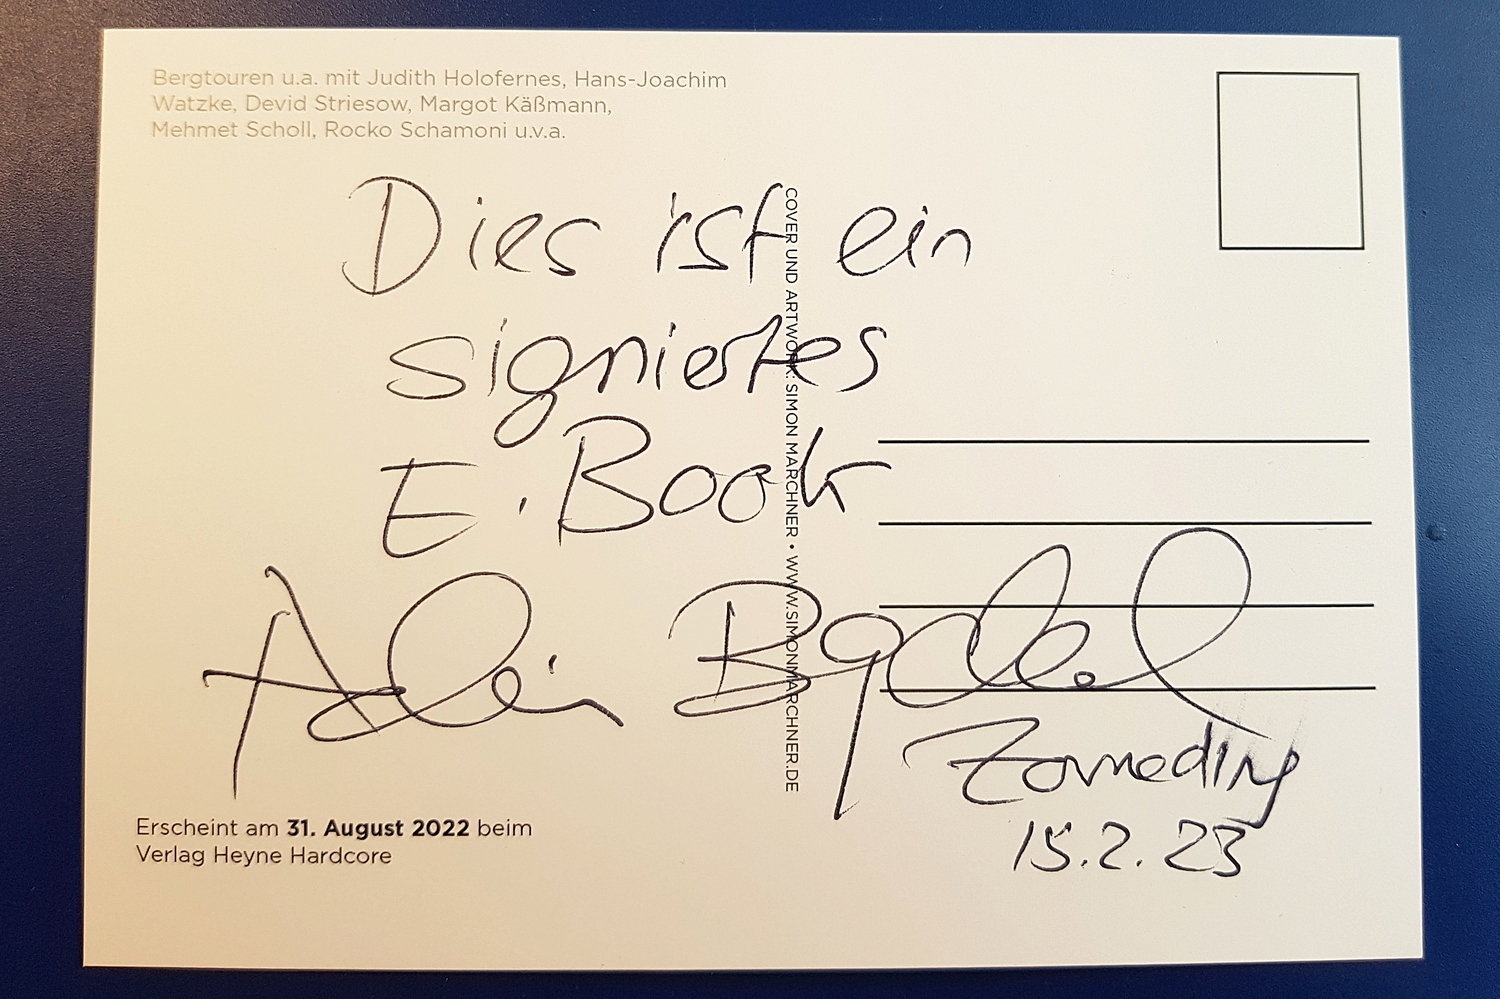 Bergtouren u.a. mit Judith Holofernes, Hans-Joachim
Watzke, Devid Striesow, Margot Käßmann,
Mehmet Scholl, Rocko Schamoni u.v.a.
Dies ist ein
signiertes
E.Book
Zorneding
15.2.23
COVER UND ARTWORK: SIMON MARCHNER • WWW.SIMONMARCHNER.DE
Erscheint am 31. August 2022 beim
Verlag Heyne Hardcore